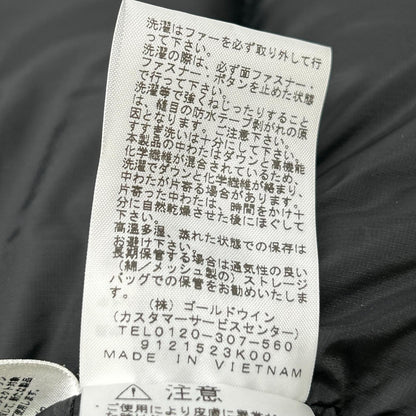 洗濯はファーを必ず取り外して行
って下さい。
洗濯の際は、必ず面ファスナー・
ファスナー・ボタンを止めた状態
で行って下さい。
洗濯等で強くねじったりすること
は、縫目の防水テープ剥がれの原
因となります。ご注意下さい。
すすぎ洗いは十分にして下さい。
本製品の中わたはダウンと高機能
化学繊維が混合されているため、
洗濯でダウンと化学繊維が絡まり、
中わたが片寄る場合があります。
片寄った中わたは、時間をかけ十
分に自然乾燥させた後にほぐして
下さい。
高温多湿、蒸れた状態での保存は
お避け下さい。
長期保管する場合は通気性の良い
(綿／メッシュ製の) ストレージ
バッグでの保管をお勧めいたしま
す。
(株) ゴールドウイン
(カスタマーサービスセンター)
TEL0120-307-560
9121523K00
MADE IN VIETNAM
注意
ご使用により皮膚に異常